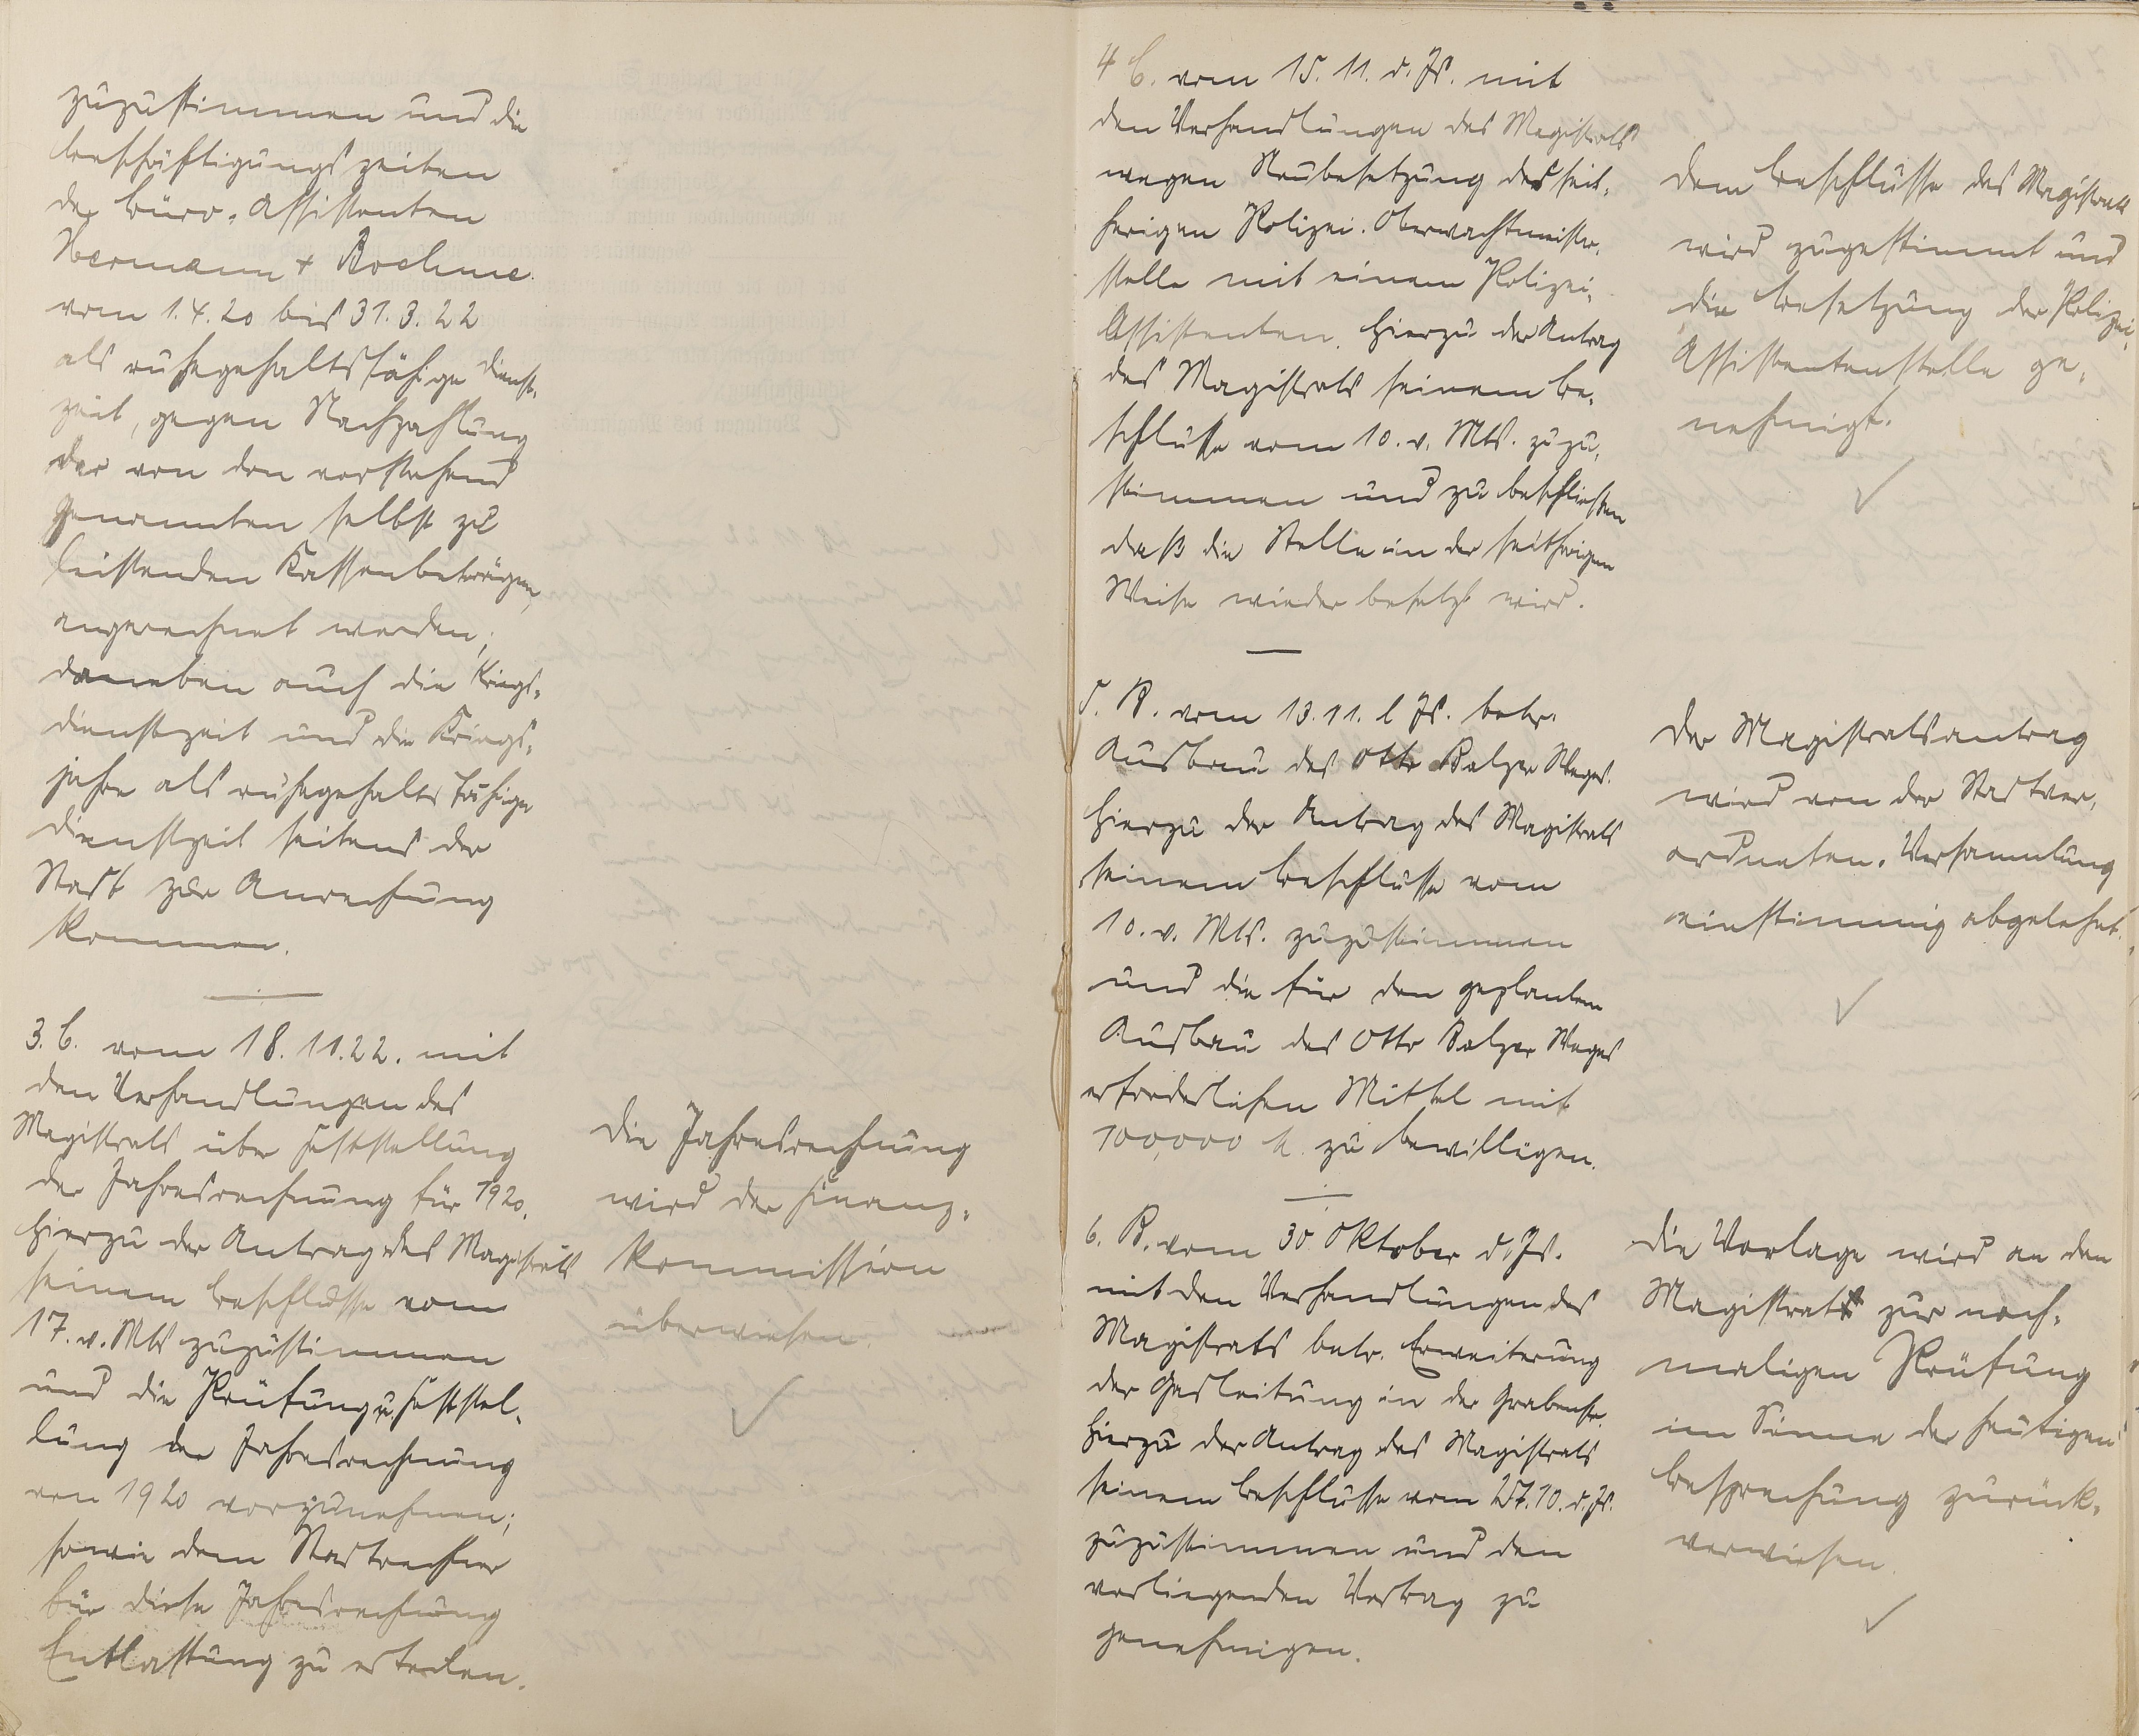 zuzustimmen und die
Beschäftigungszeiten
der Büro-Assistenten
Hermann + Boehme
vom 1.4.20 bis 31.3.22
als ruhegehaltsfähige Dienst-
zeit, gegen Nachzahlung
der von den vorstehend
Genannten selbst zu
leistenden Kassenbeträgen,
angerechnet werden;
daneben auch die Kriegs-
dienstzeit und die Kriegs-
jahre als ruhegehaltsfähige
Dienstzeit seitens der
Stadt zur Anrechnung
kommen.
3. B. vom 18.11.22. mit
den Verhandlungen des
Magistrats über Feststellung
der Jahresrechnung für 1920.
Hierzu der Antrag des Magistrats
seinem Beschlusse vom
17. v. Mts zuzustimmen
und die Prüfung u. Feststel-
lung der Jahresrechnung
von 1920 vorzunehmen;
sowie dem Stadtrechner
für diese Jahresrechnung
Entlastung zu erteilen.
Die Jahresrechnung
wird der Finanz-
kommission
überwiesen.
4 B. vom 15. 11. d. Js. mit
den Verhandlungen des Magistrats
wegen Neubesetzung der seit-
herigen Polizei-Oberwachtmeister-
stelle mit einem Polizei-
Assistenten. Hierzu der Antrag
des Magistrats seinem Be-
schlusse vom 10. v. Mts. zuzu-
stimmen und zu beschließen
daß die Stelle in der seitherigen
Weise wieder besetzt wird.
Dem Beschlusse des Magistrats
wird zugestimmt und
die Besetzung der Polizei-
Assistentenstelle ge-
nehmigt.
5. B. vom 13.11. l Js. betr.
Ausbau des Otto Balzer Weges.
Hierzu der Antrag des Magistrats
seinem Beschlusse vom
10. v. Mts. zuzustimmen
und die für den geplanten
Ausbau des Otto Balzer Weges
erforderlichen Mittel mit
100,000 M. zu bewilligen.
Der Magistratsantrag
wird von der Stadtver-
ordneten-Versammlung
einstimmig abgelehnt.
6. B. vom 30 Oktober d. Js.
mit den Verhandlungen des
Magistrats betr. Erweiterung
der Gasleitung in der Grabenstr.
Hierzu der Antrag des Magistrats
seinem Beschlusse vom 27.10. d. Js.
zuzustimmen und den
vorliegenden Vertrag zu
genehmigen.
Die Vorlage wird an den
Magistrat zur noch-
maligen Prüfung
im Sinne der heutigen
Besprechung zurück-
verwiesen.